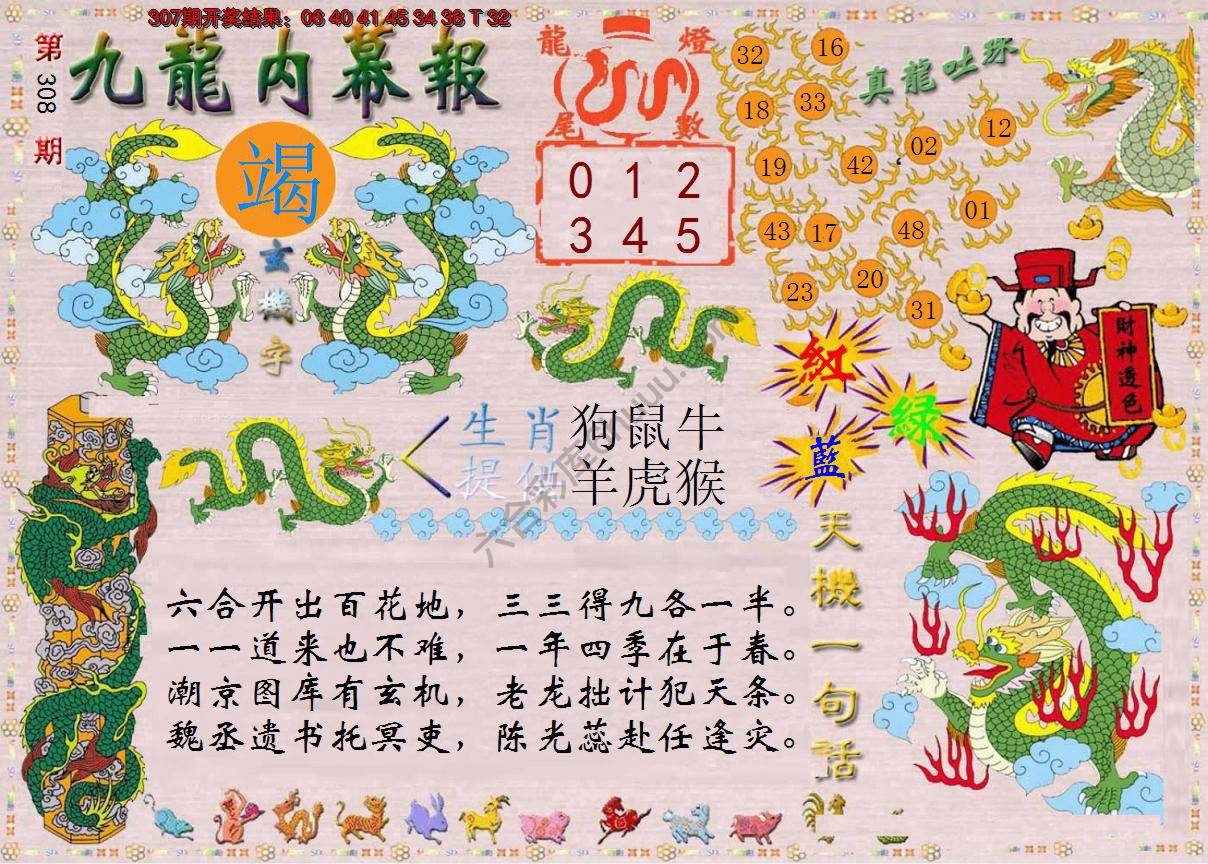 307期开奖结果：06 40 41 45 34 38 T 32
第308期
九龍内幕報
竭
玄機字
龍燈尾數
0 1 2
3 4 5
真龍吐珠
32 16
18 33
19 42 02 12
43 17 48 01
23 20 31
財神透色
紅
綠
藍
生肖 狗鼠牛
提供 羊虎猴
六合开出百花地，三三得九各一半。
一一道来也不难，一年四季在于春。
潮京图库有玄机，老龙拙计犯天条。
魏丞遗书托冥吏，陈光蕊赴任逢灾。
天機一句話